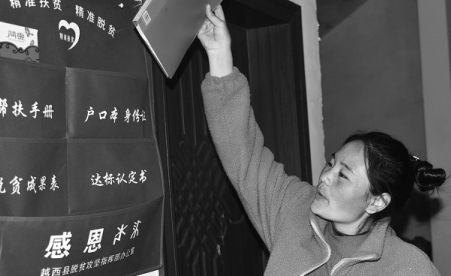 精准扶贫 精准脱贫
精准扶贫
帮扶手册 户口本 身份证
脱贫成果表 达标认定书
感恩
越西县脱贫攻坚指挥部办公室